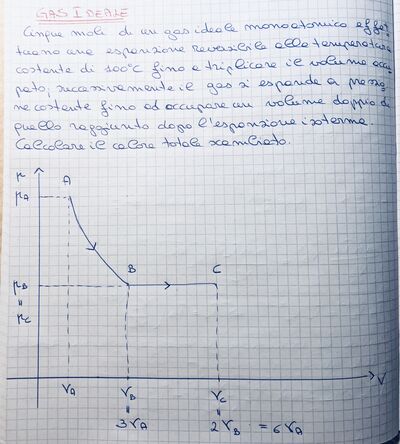 GAS IDEALE
Cinque moli di un gas ideale monoatomico effet
tuano una espansione reversibile alla temperatura
costante di 100°C fino a triplicare il volume occu
pato; successivamente il gas si espande a pressio
ne costante fino ad occupare un volume doppio di
quello raggiunto dopo l'espansione isoterma.
Calcolare il calore totale scambiato.
p
A
pA
B
C
pB
=
pC
VA
VB
VC
V
=
=
3VA
2VB = 6VA